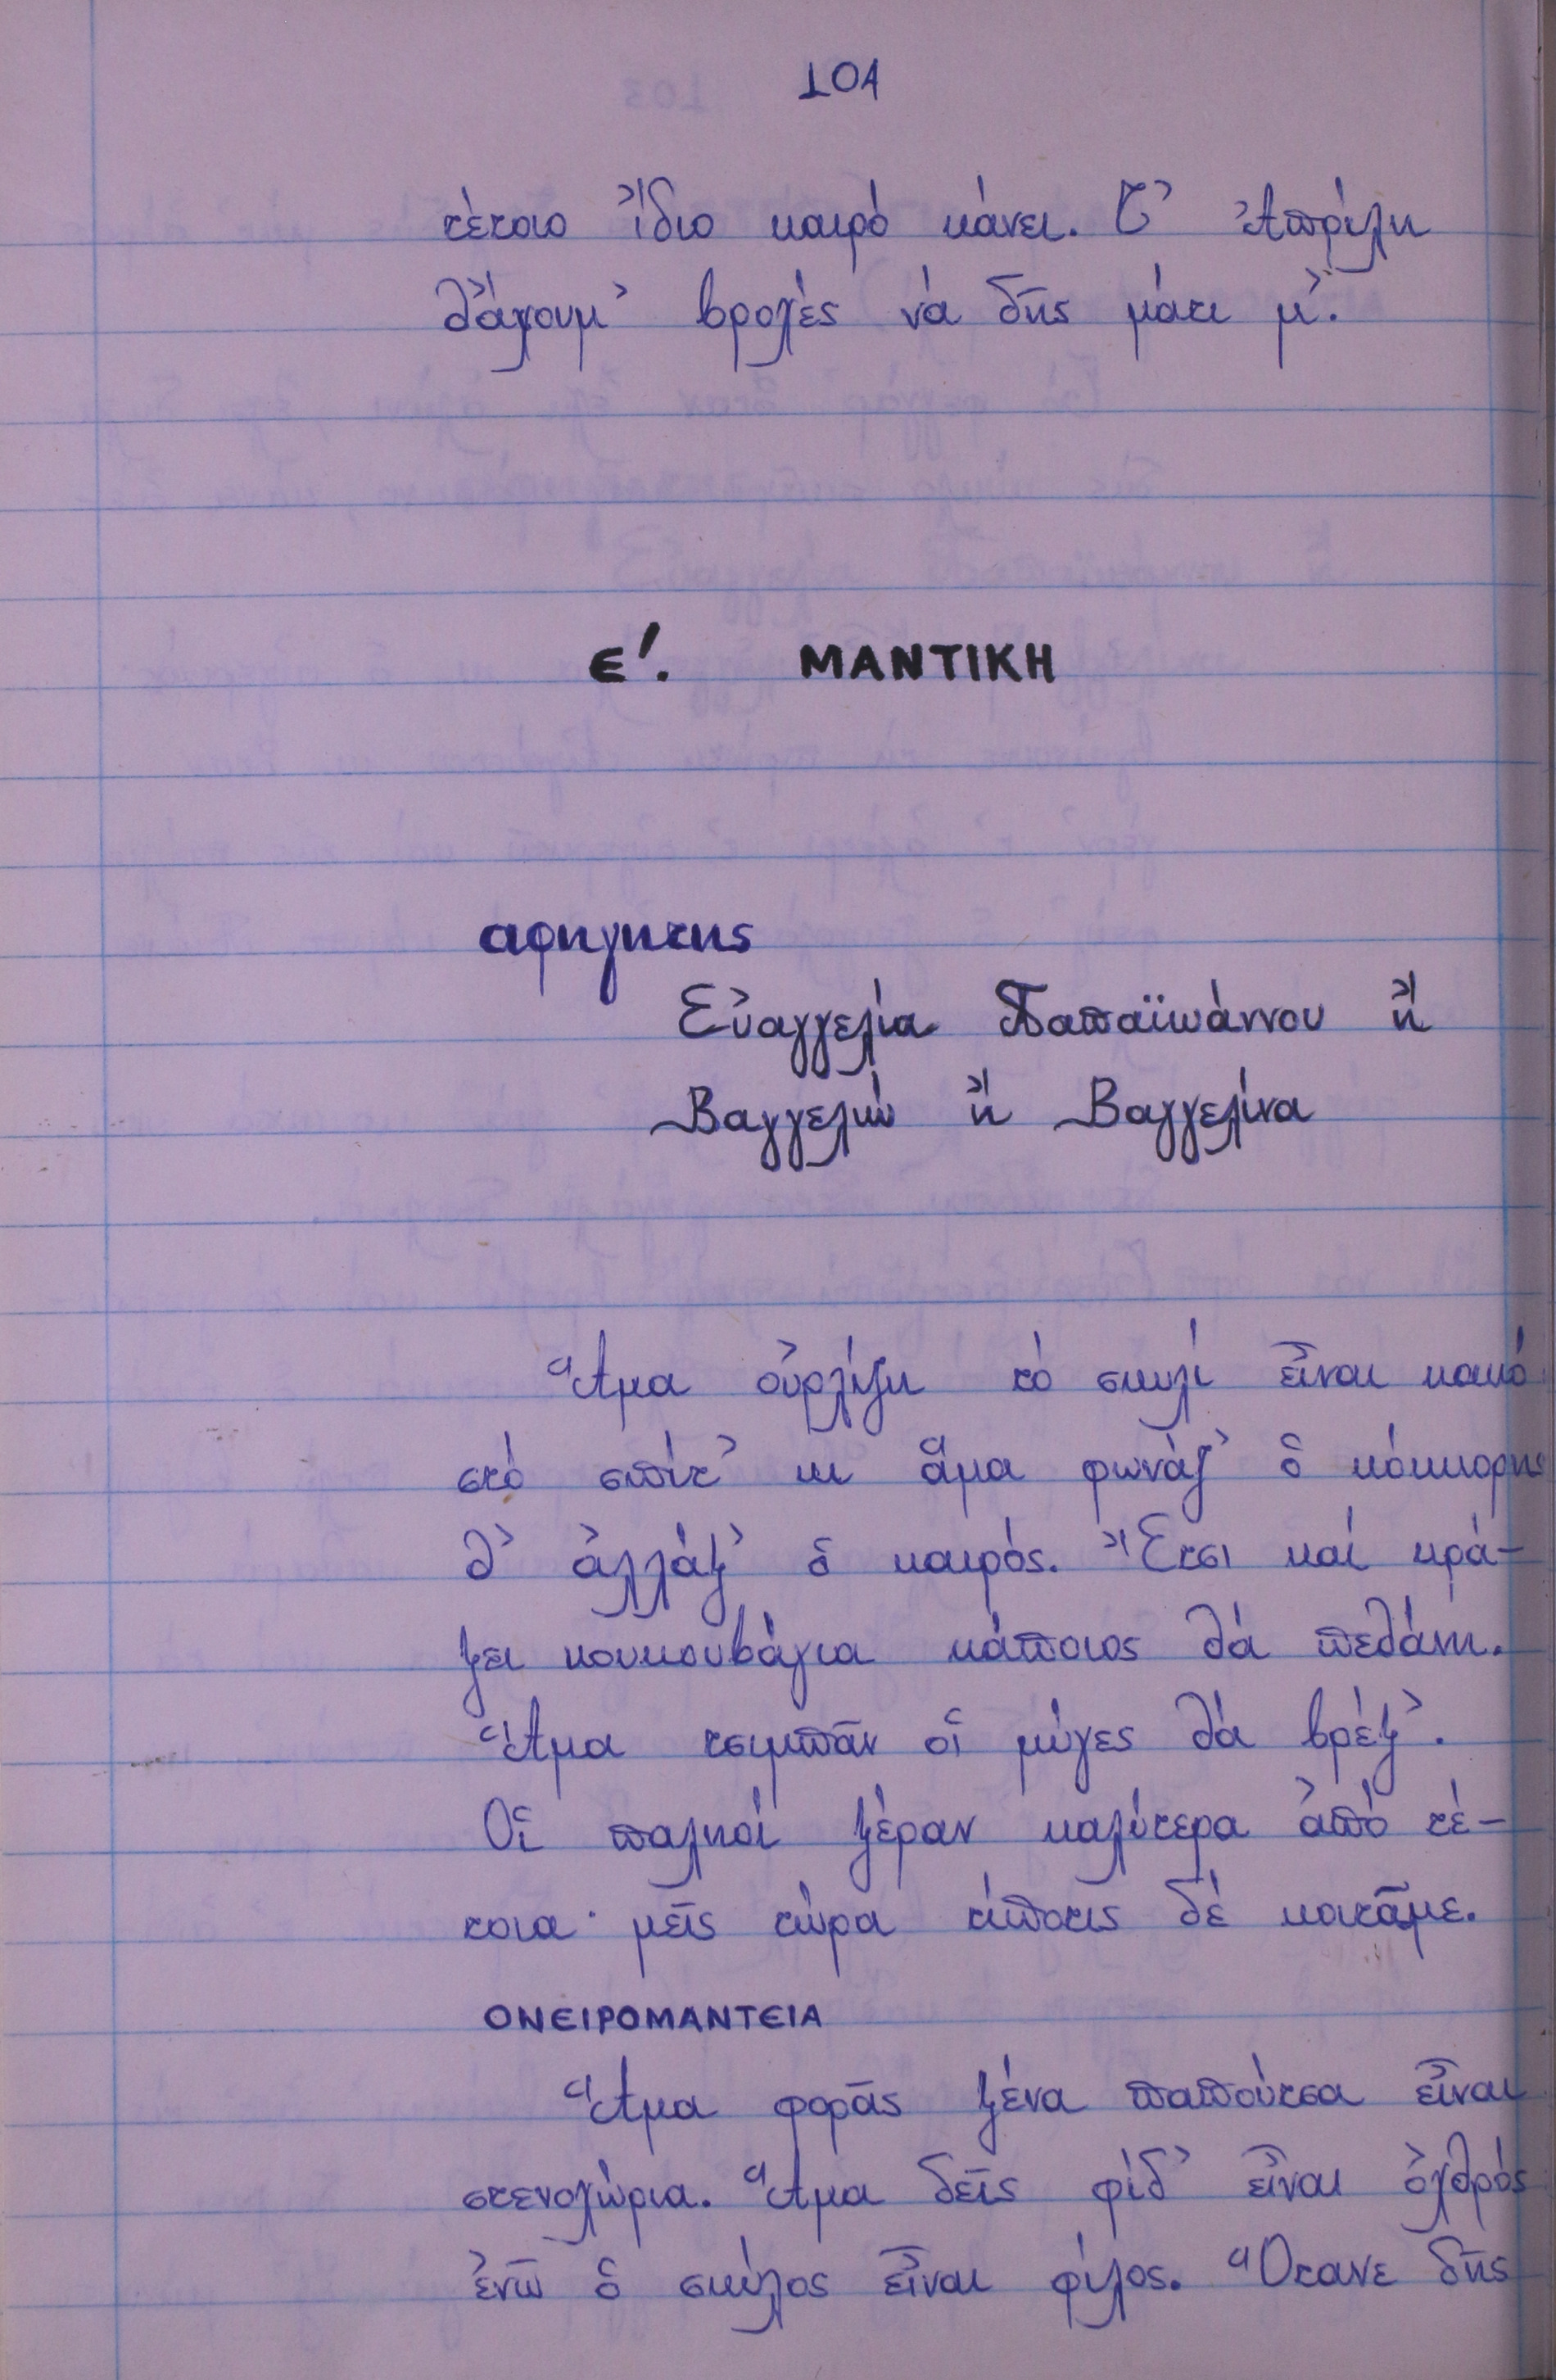 104
τέτοιο ἴδιο καιρό κάνει. Τ᾽ Ἀπρίλη
θἄχουμ᾽ βροχές νά δῆς μάτι μ᾽.
Ε΄. ΜΑΝΤΙΚΗ
αφηγητης
Εὐαγγελία Παπαϊωάννου ἤ
Βαγγελιώ ἤ Βαγγελίνα
Ἅμα οὐρλίζη τό σκυλί εἶναι κακό
στό σπίτ᾽ κι ἅμα φωνάξ᾽ ὁ κόκκορης
θ᾽ ἀλλάξ᾽ ὁ καιρός. Ἔτσι καί κρά-
ξει κουκουβάγια κάποιος θά πεθάνη.
Ἅμα τσιμπᾶν οἱ μύγες θά βρέξ᾽.
Οἱ παληοί ξέραν καλύτερα ἀπό τέ-
τοια· μεῖς τώρα τίποτις δέ κοιτᾶμε.
ΟΝΕΙΡΟΜΑΝΤΕΙΑ
Ἅμα φορᾶς ξένα παπούτσα εἶναι
στενοχώρια. Ἅμα δεῖς φίδ᾽ εἶναι ὀχθρός
ἐνῶ ὁ σκύλος εἶναι φίλος. Ὅτανε δῆς